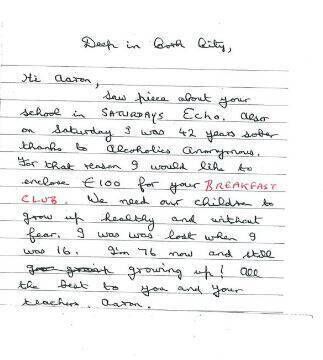 Deep in Cork City,
Hi Aaron,
Saw piece about your
school in SATURDAYS ECHO. Also
on Saturday I was 42 years sober
thanks to Alcoholics Anonymous.
For that reason I would like to
enclose €100 for your BREAKFAST
CLUB. We need our children to
grow up healthy and without
fear. I was was lost when I
was 16. I'm 76 now and still
growing up! All
the best to you and your
teachers. Aaron.